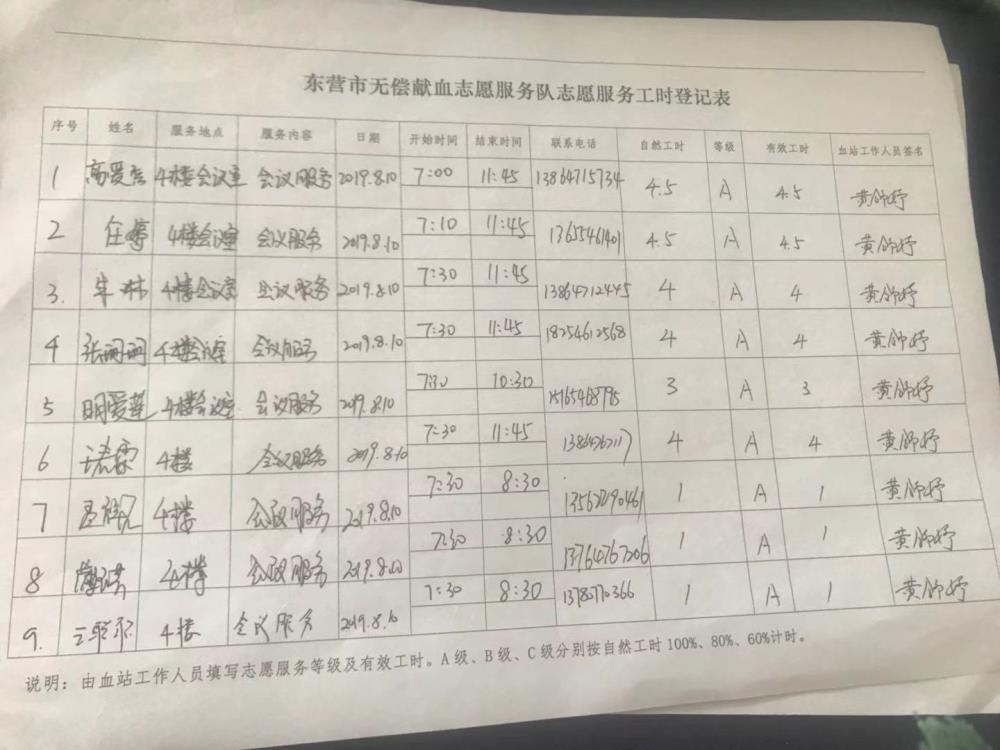 东营市无偿献血志愿服务队志愿服务工时登记表
序号 姓名 服务地点 服务内容 日期 开始时间 结束时间 联系电话 自然工时 等级 有效工时 血站工作人员签名
1 4楼会议室 会议服务 2019.8.10 7:00 11:45 13864715734 4.5 A 4.5
2 任婷 4楼会议室 会议服务 2019.8.10 7:10 11:45 13655461401 4.5 A 4.5
3. 4楼会议室 会议服务 2019.8.10 7:30 11:45 13864712445 4 A 4
4 张丽丽 4楼会议室 会议服务 2019.8.10 7:30 11:45 18254612568 4 A 4
5 明爱莲 4楼会议室 会议服务 2019.8.10 7:30 10:30 3 A 3
6 4楼 会议服务 2019.8.10 7:30 11:45 4 A 4
7 4楼 会议服务 2019.8.10 7:30 8:30 1 A 1
8 4楼 会议服务 2019.8.10 7:30 8:30 13764767206 1 A 1
9. 4楼 会议服务 2019.8.10 7:30 8:30 1 A 1
说明：由血站工作人员填写志愿服务等级及有效工时。A级、B级、C级分别按自然工时100%、80%、60%计时。